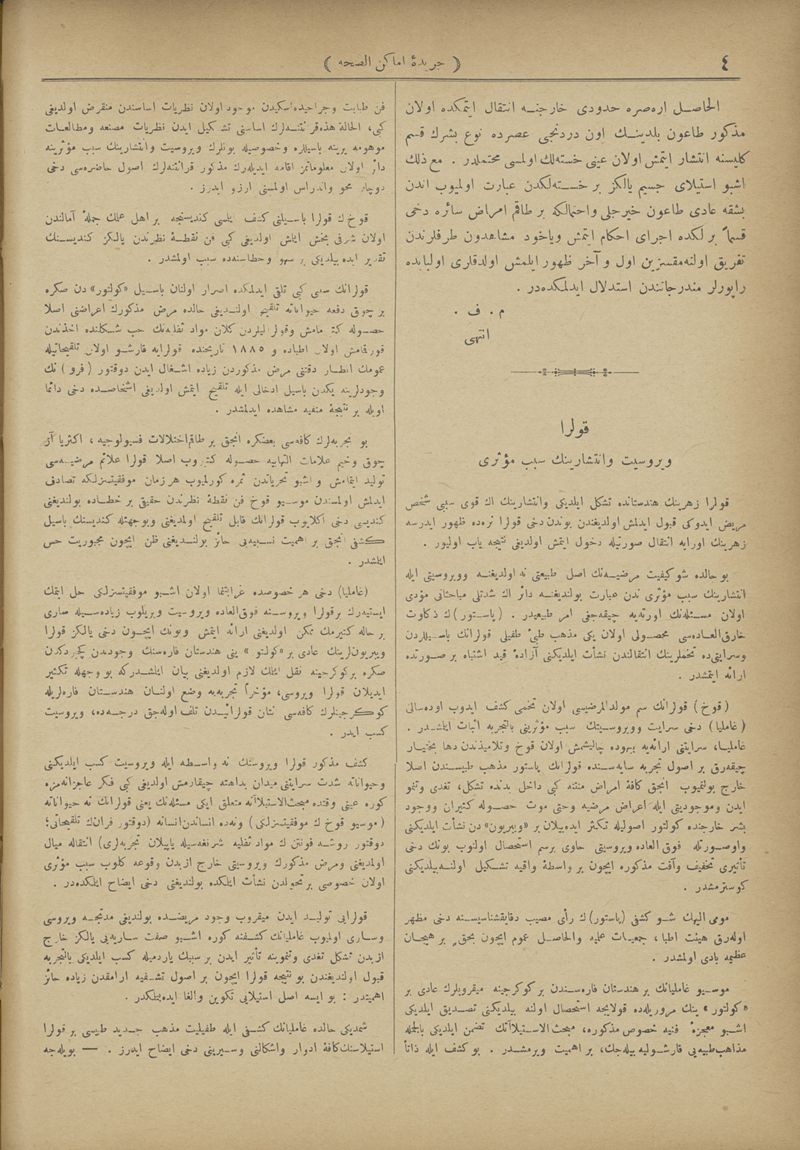 ٤
( جریدهٔ اماكن الصحه )
الحاصل اره‌صره حدودی خارجنه انتقال ایتمكده اولان
مذكور طاعون بلدینك اون دردنجی عصرده نوع بشرك قسم
كلیسنه انتشار ایتمش اولان عینی خسته‌لك اولمسی محتملدر . مع ذلك
اشبو استیلای جسیم یالكز بر خسته‌لكدن عبارت اولمیوب اندن
بشقه عادی طاعون خیرجلی واحتمالكه بر طاقم امراض سائره دخی
قسماً برلكده اجرای احكام ایتمش ویاخود مشاهدون طرفلرندن
تفریق اولنه‌مقسزین اول و آخر ظهور ایلمش اولدقاری اولبابده
راپورلر مندرجاتندن استدلال ایدلمكده‌در .
م . ف .
انتهی
قولرا
ویروسیت وانتشارینك سبب مؤثری
قولرا زهرینك هندستانده تشكل ایلدیكی وانتشارینك اك قوی سببی شخص
مریض ایدوكی قبول ایدلمش اولدیغندن بوندن دخی قولرا نره‌ده ظهور ایدرسه
زهرینك اورایه انتقال صورتیله دخول ایتمش اولدیغی نتیجه یاب اولیور .
بو حالده شو كیفیت مرضیه‌نك اصل طبیعتی نه اولدیغنه وویروسیتی ایله
انتشارینك سبب مؤثری ندن عبارت بولندیغنه دائر اك شدتلی مباحثاتی مؤدی
اولان مسئله‌نك اورته‌یه چیقه‌جغی امر طبیعیدر . (پاستور) ك ذكاوت
خارق‌العاده‌سی محصولی اولان یكی مذهب طبی طفیلی قولرانك باسیللردن
وسرایتی‌ده تخملرینك انتقالندن نشأت ایلدیكنی آزادهٔ قید اشتباه بر صورتده
ارائه ایتمشدر .
(قوخ) قولرانك سم مولدالمرضیسی اولان تخمی كشف ایدوب اوده‌سالی
(غامالیا) دخی سرایت وویروسیتك سبب مؤثرینی بالتجربه اثبات ایلمشدر .
غامالیا، سرایتی ارائه‌یه بیهوده چالیشمش اولان قوخ وتلامیذندن دها بختیار
چیقه‌رق بر اصول تجربه سایه‌سنده قولرانك پاستور مذهب طبیسندن اصلا
خارج بولنمیوب انجق كافهٔ امراض منتنه كبی داخل بدنده تشكل، تغدی ونمو
ایدن وموجودیتی ایله اعراض مرضیه وحتی موت حصوله كتیران ووجود
بشر خارجنده كولتور اصولیله تكثر ایده‌بیلان بر «ویبریون» دن نشأت ایلدیكنی
واوصورتله فوق‌العاده ویروسیتی حاوی برسم استحصال اولنوب بونك دخی
تأثیری تخفیف وآفت مذكوره ایچون بر واسطهٔ واقیه تشكیل اولنه‌بیلدیكنی
كوسترمشدر .
مومی الیهك شو كشفی (پاستور) ك رأی مصیب دقایقشناسیسنه دخی مظهر
اوله‌رق هیئت اطبا، جمعیات علمیه والحاصل عموم ایچون بحق بر هیجان
عظیمه بادی اولمشدر .
موسیو غامالیانك بر هندستان فاره‌سندن بر كوكرجینه میقروبلرك عادی بر
«كولتور» ینك مروریله‌ده قولایجه استحصال اولنه بیلدیكنی تصدیق ایلدیكی
اشبو معجزهٔ فنیه خصوص مذكوره، مبحث‌الاستیلاآتك تضمن ایلدیكی بالجمله
مذاهب‌طبیه‌یی قارشولیه بیله‌جك، بر اهمیت ویرمشدر . بو كشف ایله ذاتاً
فن طبابت وجراحیده‌اسكیدن موجود اولان نظریات اساسندن منقرض اولدیغی
كبی، الحالة هذه قرائتنه‌لرك اساسنی تشكیل ایدن نظریات مصنعه ومطالعات
موهومه یرینه باسیللره وخصوصیله بونلرك ویروسیت وانتشارینك سبب مؤثرینه
دائر اولان معلوماتمز اقامه ایدیله‌رك مذكور قرائتنه‌لرك اصول حاضره‌سی دخی
دوچار محو واندراس اولمسنی ارزو ایدرز .
قوخ ك قولرا باسیلنی كشف ایلمسی كندیسنجه بر اهل علمك جملهٔ آمالندن
اولان شرفی بخش ایتمش اولدیغی كبی فن نقطهٔ نظرندن یالكز كندیسنك
تقدیر ایده بیلدیكی بر سهو وخطاسنه‌ده سبب اولمشدر .
قولرانك سمی كبی تلقی ایدلمكده اصرار اولنان باسیل «كولتور» دن صكره
بر چوق دفعه حیواناته تلقیح اولندیغی حالده مرض مذكورك اعراضنی اصلا
حصوله كتیرمامش وقولرالیلردن كلان مواد ثفلیه‌نك حب شكلنده اخذندن
قورقمامش اولان اطباده و ١٨٨٥ تاریخنده قولرایه قارشو اولان تلقیحاتیله
عمومك انظار دقتنی مرض مذكوردن زیاده اشغال ایدن دوقتور (فرو) نك
وجودلرینه یكدن باسیل ادخالی ایله تلقیح ایتمش اولدیغی اشخاصده دخی دائما
اویله بر نتیجهٔ منفیه مشاهده ایدلمشدر .
بو تجربه‌لرك كافه‌سی بعضكره انجق بر طاقم اختلالات فسیولوجیه، اكثریا آز
چوق وخیم علامات التهابیه حصوله كتیروب اصلا قولرا علائم مرضیه‌سی
تولید ایتمامش و اشبو تحریاتدن ثمره كورلمیوب هر زمان موفقیتسزلكه تصادف
ایدلمش اولمسندن موسیو قوخ فن نقطهٔ نظرندن حقیقی بر خطاده بولندیغنی
كندیسی دخی اكلایوب قولرانك قابل تلقیح اولمدیغنی وبوجهتله كندیسنك باسیل
كشفی انجق بر اهمیت نسبیه‌یی حائز بولندیغنی ظن ایچون مجبوریت حس
ایلمشدر .
(غامالیا) دخی هر خصوصده غرابتنما اولان اشبو موفقیتسزلكی حل ایتمك
ایستیه‌رك بر قولرا ویروسنه فوق‌العاده ویروسیت ویریلوب زیاده‌سیله ساری
بر حاله كتیرمك ممكن اولدیغنی ارائه ایتمش وبونك ایچون دخی یالكز قولرا
ویبریونلرینك عادی بر «كولتور» ینی هندستان فاره‌سنك وجودندن كچیردكدن
صكره بر كوكرجینه نقل ایتمك لازم اولدیغنی بیان ایلمشدركه بو وجهله تكثیر
ایدیلان قولرا ویروسی، مؤخراً تجربه‌یه وضع اولنان هندستان فاره‌لریله
كوكرجینلرك كافه‌سی نتنان قولرائیدن تلف اوله‌جق درجه‌ده، ویروسیت
كسب ایدر .
كشف مذكور قولرا ویروسنك نه واسطه ایله ویروسیت كسب ایلدیكنی
وحیواناته شدت سرایتنی میدان بداهته چیقارمش اولدیغی كبی فكر عاجزانه‌مزه
كوره عینی وقتده مبحث‌الاستیلاآته متعلق ایكی مسئله‌نك یعنی قولرانك نه حیواناته
(موسیو قوخ ك موفقیتسزلكی) ونه‌ده انساندن انسانه (دوقتور فران‌ك تلقیحاتی؛
دوقتور روشفونتن ك مواد ثفلیه شرنغه‌سیله یاپیلان تجربه‌لری) انتقاله میال
اولمدیغی ومرض مذكورك ویروسیتی خارج ازبدن وقوعه كلوب سبب مؤثری
اولان خصوصی بر تحولدن نشأت ایلمكده بولندیغنی دخی ایضاح ایلمكده‌در .
قولرایی تولید ایدن میقروب وجود مریضده بولندیغی مدتجه ویروسی
وساری اولمیوب غامالیانك كشفنه كوره اشبو صفت ساریه‌یی یالكز خارج
ازبدن تشكل تغدی ونموینه تأثیر ایدن بر سببك یاردمیله كسب ایلدیكی بالتجربه
قبول اولندیغندن بو نتیجه قولرا ایچون بر اصول تشفیه ارامقدن زیاده حائز
اهمیتدر : بو ایسه اصل استیلایی تكوین والغا ایده‌بتكدر .
شمدیكی حالده غامالیانك كشفی ایله طفیلیت مذهب جدید طبیسی بر قولرا
استیلاسنك كافهٔ ادوار واشكالنی وسیرینی دخی ایضاح ایدرز . — بویله‌جه